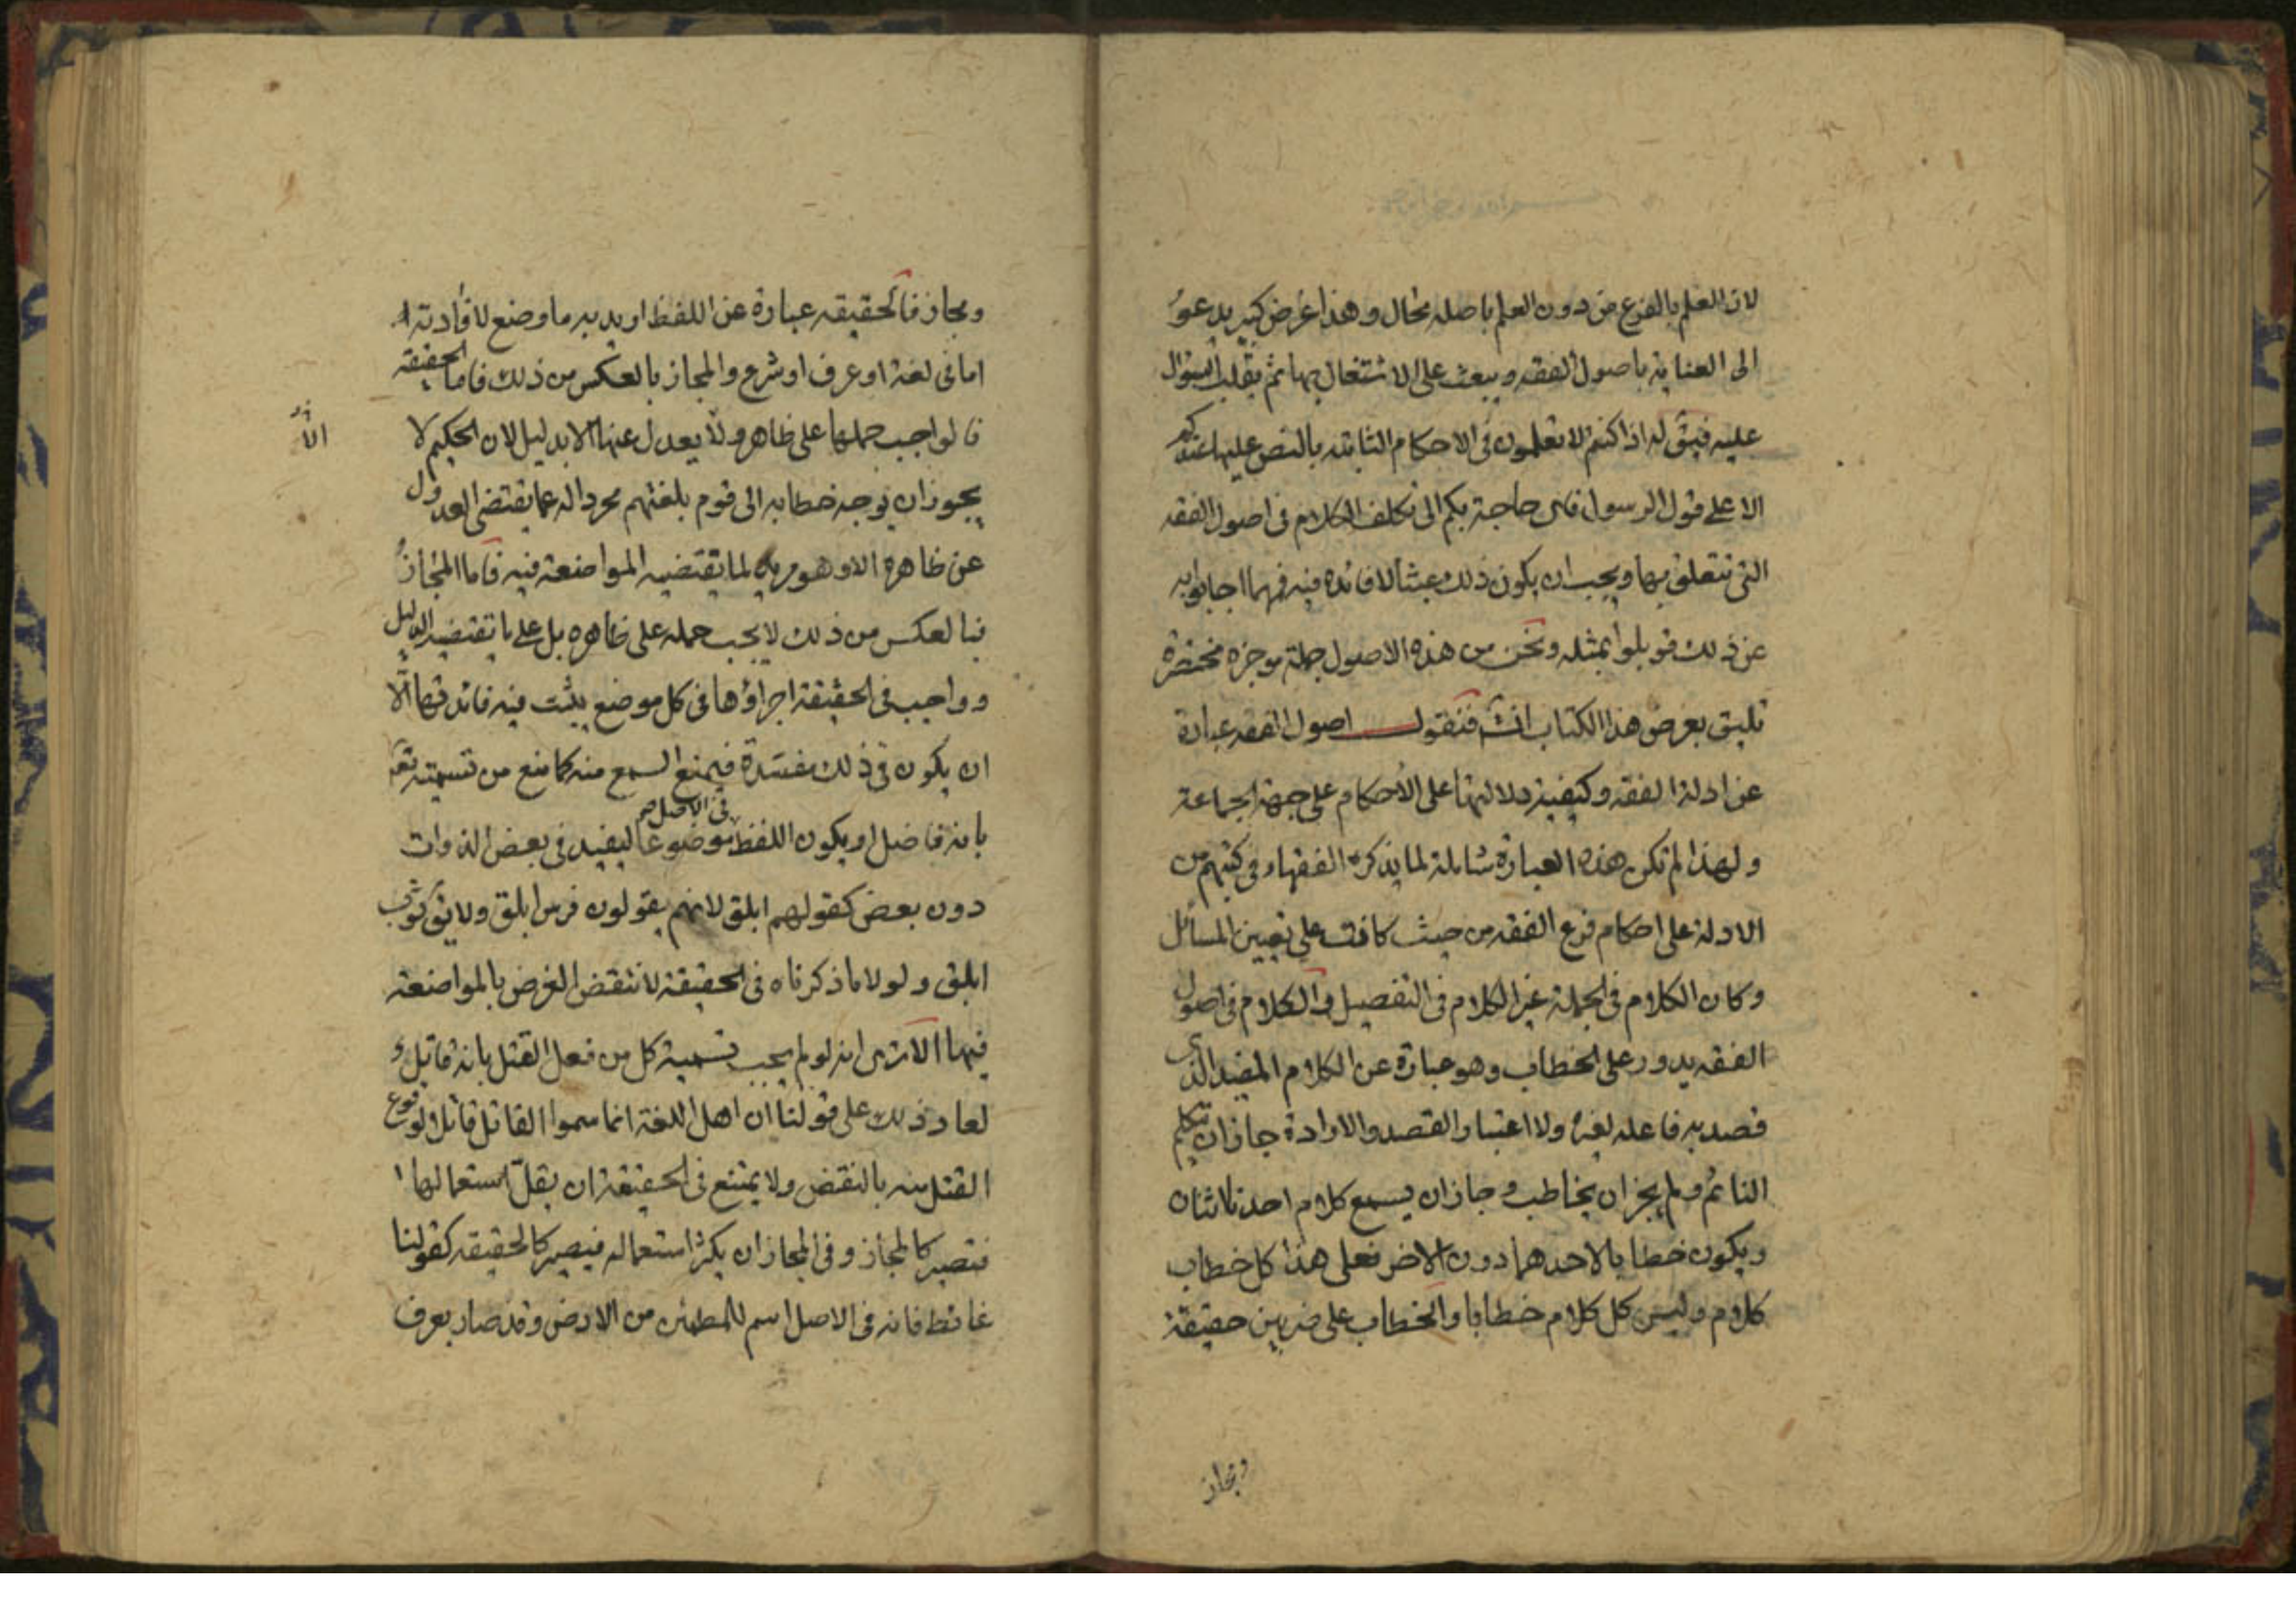 لان العلم بالفرع من دون العلم باصله محال وهذا غرض كبير يدعو
الى العناية باصول الفقه ويبعث على الاشتغال بها ثم يقلب السؤال
عليه فيق له اذا كنتم لا تعلمون فى الاحكام الثابته بالنص عليها عندكم
الا على قول الرسول فاى حاجة بكم الى تكلف الكلام فى اصول الفقه
التى تتعلق بها ويجب ان يكون ذلك عبثا لا فائده فيه فمهما اجابوا به
عن ذلك قوبلوا بمثله ونحن من هذه الاصول جملة موجزه مختصرة
تليق بغرض هذا الكتاب انش فنقول اصول الفقه عبارة
عن ادلة الفقه وكيفية دلالتها على الاحكام على جهة الجماعة
ولهذا لم تكن هذه العبارة شاملة لما يذكره الفقهاء فى كتبهم من
الادلة على احكام فرع الفقه من حيث كافت على تعيين المسائل
وكان الكلام فى الجملة غير الكلام فى التفصيل والكلام فى اصول
الفقه يدور على الخطاب وهو عبارة عن الكلام المفيد الذى
قصد به فاعله لغيره ولا اعتبار القصد والارادة جاز ان تكلم
النائم ولم يجز ان يخاطب وجاز ان يسمع كلام احدنا اثنان
ويكون خطابا لاحدهما دون الاخر فعلى هذا كل خطاب
كلام وليس كل كلام خطابا والخطاب على ضربين حقيقة
ومجاز
ومجاز فالحقيقه عبارة عن اللفظ اريد به ما وضع لافادته ا
اما فى لغة او عرف او شرع والمجاز بالعكس من ذلك فاما الحقيقه
فالواجب حملها على ظاهر ولا يعدل عنها الا بدليل لان الحكيم لا
يجوز ان يوجه خطابه الى قوم بلغتهم مجرد اله عما يقتضى العدول
عن ظاهره الا وهو مريد لما يقتضيه المواضعة فيه فاما المجاز
فبالعكس من ذلك لا يجب حمله على ظاهره بل على ما تقتضيه الدليل
وواجب فى الحقيقة اجراؤها فى كل موضع يثبت فيه فائدتها الا
ان يكون فى ذلك مفسدة فيمنع السمع منه كما منع من تسميته تعه
بانه فاضل او يكون اللفظ فى الاصل صح موضوعا ليفيد فى بعض الذوات
دون بعض كقولهم ابلق لانهم يقولون فرس ابلق ولا يق ثوب
ابلق ولولا ما ذكرناه فى الحقيقة لانتقض الغرض بالمواضعة
فيها الا ترى انه لو لم يجب تسمية كل من فعل القتل بانه قاتل و
لعاد ذلك على قولنا ان اهل اللغة انما سموا القاتل قاتلا لوقوع
القتل منه بالنقض ولا يمتنع فى الحقيقة ان يقل استعمالها ا
فتصير كالمجاز وفى المجاز ان يكثر استعماله فيصير كالحقيقه كقولنا
غائط فانه فى الاصل اسم للمطمئن من الارض وقد صار بعرف